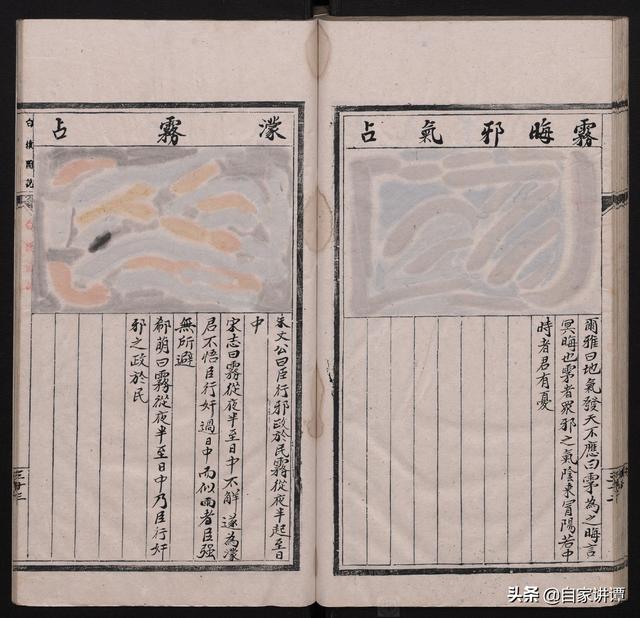 霧晦邪氣占
爾雅曰地氣發天不應曰雺為之晦言
冥晦也雺者眾邪之氣陰来冐陽若中
時者君有憂
濛霧占
朱文公曰臣行邪政於民霧從夜半起至日
中
宋志曰霧從夜半至日中不解遂為濛
君不悟臣行奸過日中而似雨者臣强
無所避
郗萌曰霧從夜半至日中乃臣行奸
邪之政於民
白猿圖說
头条 @自家讲谭